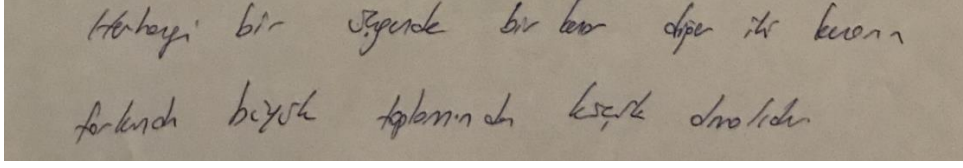 Herhangi bir üçgende bir kenar diğer iki kenarın
farkından büyük toplamından küçük olmalıdır.